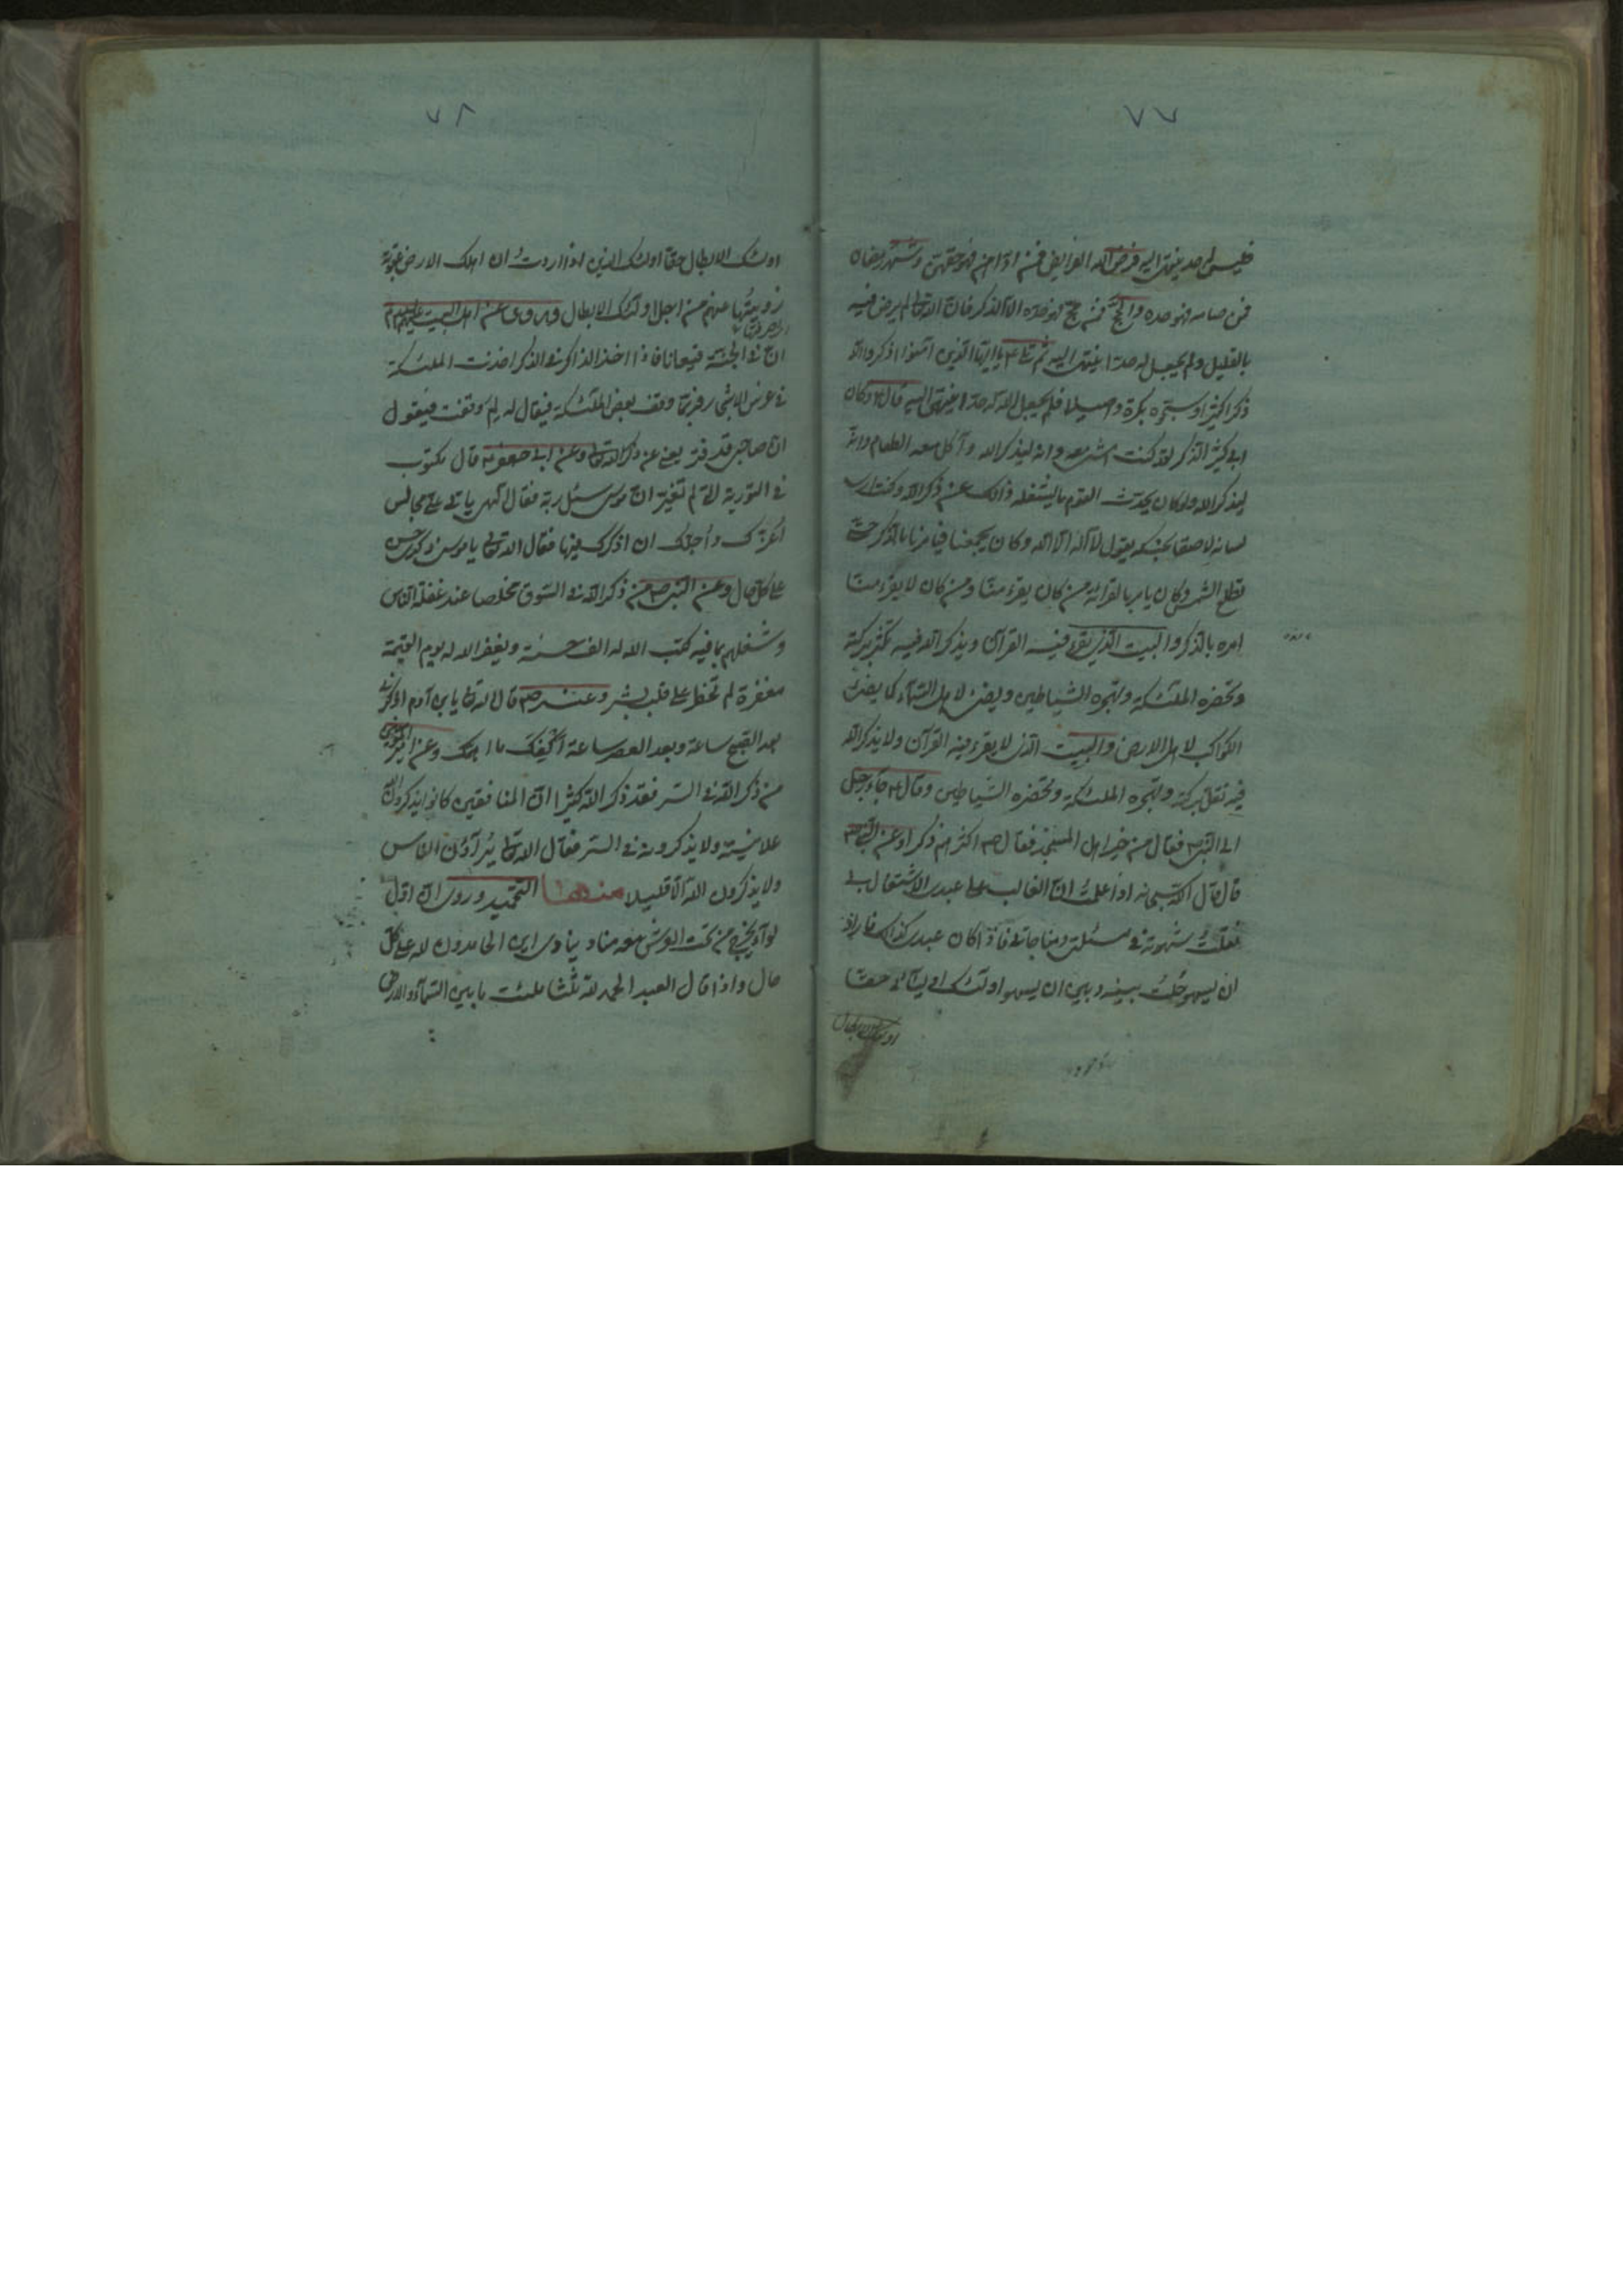 ٧٧
فليس له حد ينتهى اليه فرض الله الفرايض فمن اداهن فهو حدهن وشهر رمضان
فمن صامه فهو حده والحج فمن حج فهو حده الا الذكر فان الله تعالى لم يرض فيه
بالقليل ولم يجعل له حدا ينتهى اليه ثم تلا يا ايها الذين آمنوا اذكروا الله
ذكرا كثيرا وسبحوه بكرة واصيلا فلم يجعل الله له حدا ينتهى اليه قال وكان
ابى كثير الذكر لقد كنت امشى معه وانه ليذكر الله وآكل معه الطعام وانه
ليذكر الله ولو كان يحدث القوم ما يشغله ذلك عن ذكر الله وكنت ارى
لسانه لاصقا بحنكه يقول لا اله الا الله وكان يجمعنا فيامرنا بالذكر حتى
تطلع الشمس وكان يامر بالقرائة من كان يقرء منا ومن كان لا يقرء منا
امره بالذكر والبيت الذى يقرء فيه القرآن ويذكر الله فيه تكثر بركته
وتحضره الملئكة وتهجره الشياطين ويضئ لاهل السمآء كما يضئ
الكواكب لاهل الارض والبيت الذى لا يقرء فيه القرآن ولا يذكر الله
فيه تقل بركته وتهجره الملئكة وتحضره الشياطين وقال جآء رجل
الى النبى ص فقال من خير اهل المسجد فقال ص اكثرهم ذكرا وعن النبى ص
قال قال الله سبحانه اذا علمت ان الغالب على عبدى الاشتغال بى
نقلت شهوته فى مسئلتى ومناجاتى فاذا كان عبدى كذلك فاراد
ان يسهو حلت بينه وبين ان يسهو اولئك اوليآئى حقا
اولئك الابطال
٧٨
اولئك الابطال حقا اولئك الذين اذا اردت ان اهلك الارض عقوبة
زويتها عنهم من اجل اولئك الابطال وروى عن اهل البيت عليهم السلام
ان فى الجنة قيعانا فاذا اخذ الذاكر فى الذكر اخذت الملئكة
فى غرس الاشجار فربما وقف بعض الملئكة فيقال له لم وقفت فيقول
ان صاحبى قد فتر يعنى عن ذكر الله تعالى وعن ابى جعفر قال مكتوب
فى التورية التى لم تغير ان موسى سئل ربه فقال الهى ياتى على مجالس
اعزك واجلك ان اذكرك فيها فقال الله تعالى يا موسى ذكرى حسن
على كل حال وعن النبى ص من ذكر الله فى السوق مخلصا عند غفلة الناس
وشغلهم بما فيه كتب الله له الف حسنة ويغفر الله له يوم القيمة
مغفرة لم تخطر على قلب بشر وعنه ص قال الله تعالى يابن آدم اذكرنى
بعد الصبح ساعة وبعد العصر ساعة اكفيك ما اهمك وعن امير المؤمنين
من ذكر الله فى السر فقد ذكر الله كثيرا ان المنافقين كانوا يذكرون الله
علانية ولا يذكرونه فى السر فقال الله تعالى يرآؤن الناس
ولا يذكرون الله الا قليلا منها التحميد وروى ان اول
لوآء يخرج من تحت العرش معه مناد ينادى اين الحامدون لله على كل
حال واذا قال العبد الحمد لله ثلثا ملئت ما بين السمآء والارض